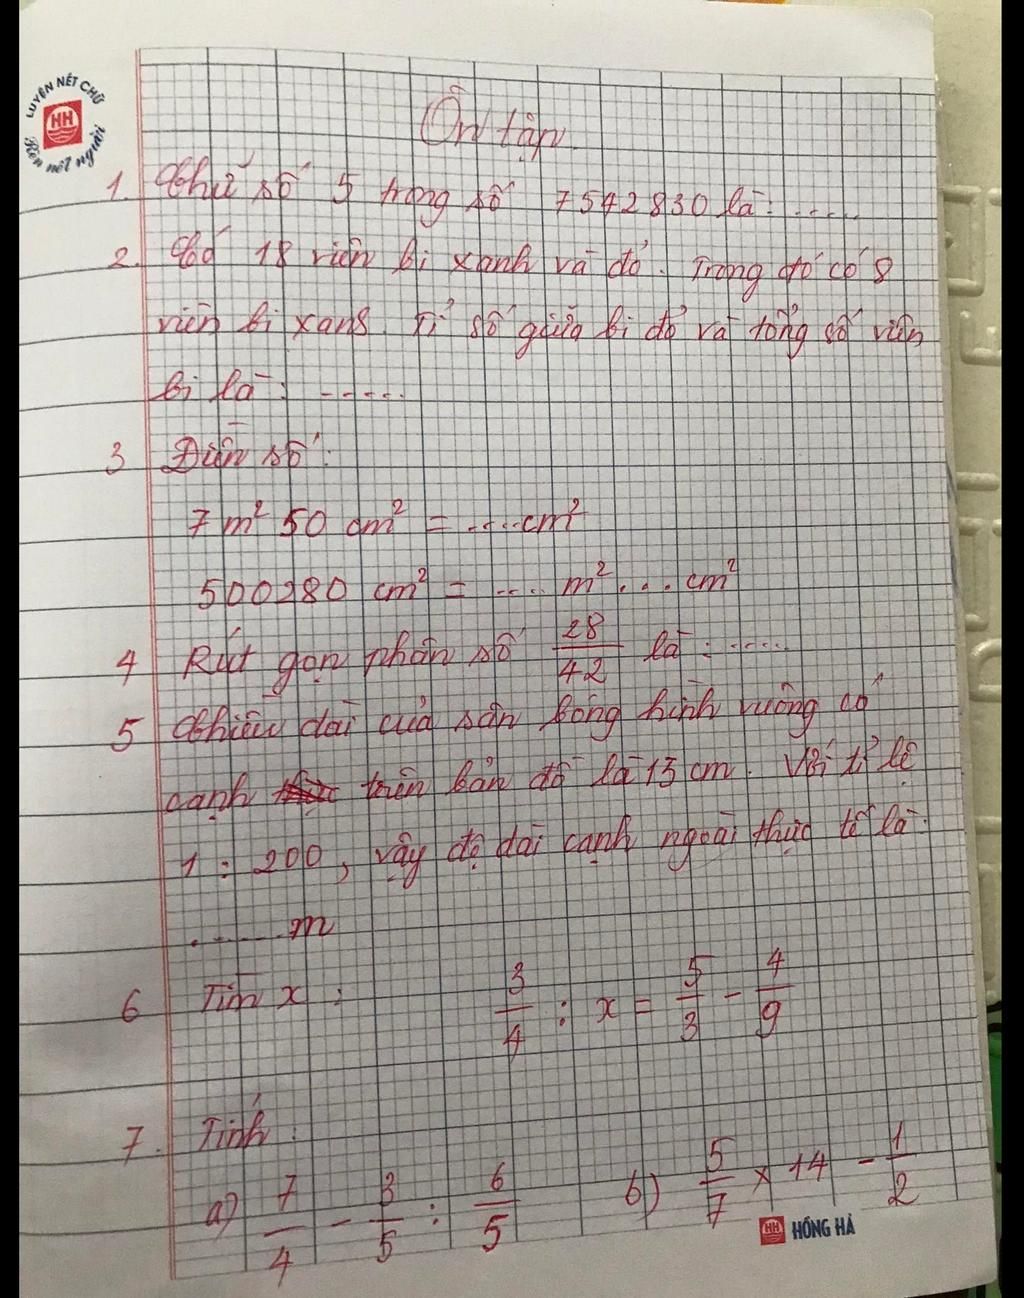 LUYỆN NÉT CHỮ
HH
Rèn nết người
Ôn tập
1. Chữ số 5 trong số 7542830 là: .....
2. Có 18 viên bi xanh và đỏ. Trong đó có 8
viên bi xanh. Tỉ số giữa bi đỏ và tổng số viên
bi là: .....
3 Điền số:
7 m² 50 cm² = .....cm²
500280 cm² = .... m² ... cm²
4 Rút gọn phân số 28/42 là: .....
5 Chiều dài của sân bóng hình vuông có
cạnh trên bản đồ là 15 cm. Với tỉ lệ
1 : 200, vậy độ dài cạnh ngoài thực tế là:
.......m
6 Tìm x : 3/4 : x = 5/3 - 4/9
7. Tính:
a) 7/4 - 3/5 : 6/5 b) 5/7 x 14 - 1/2
HH HỒNG HÀ